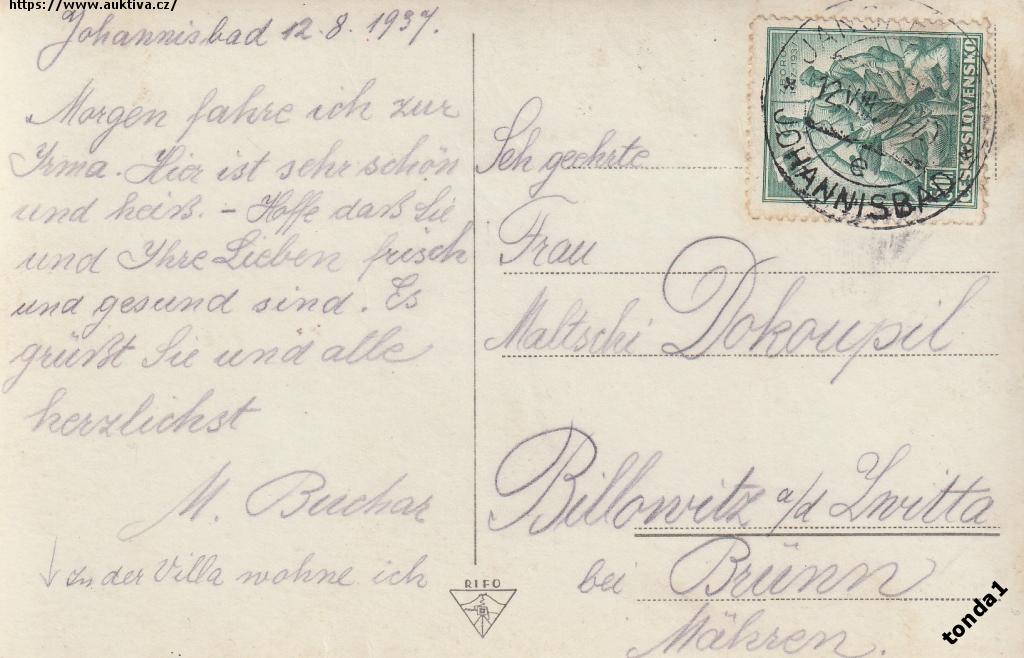 https://www.auktiva.cz/
Johannisbad 12.8.1937.
Morgen fahre ich zur
Irma. Hier ist sehr schön
und heiß. – Hoffe daß Sie
und Ihre Lieben frisch
und gesund sind. Es
grüßt Sie und alle
herzlichst
M. Buchar
In der Villa wohne ich
RIFO
Seh geehrte
Frau
Maltschi Dokoupil
Billowitz a/d Zwitta
bei Brünn
Mähren.
ČESKOSLOVENSKO
JOHANNISBAD
tonda1